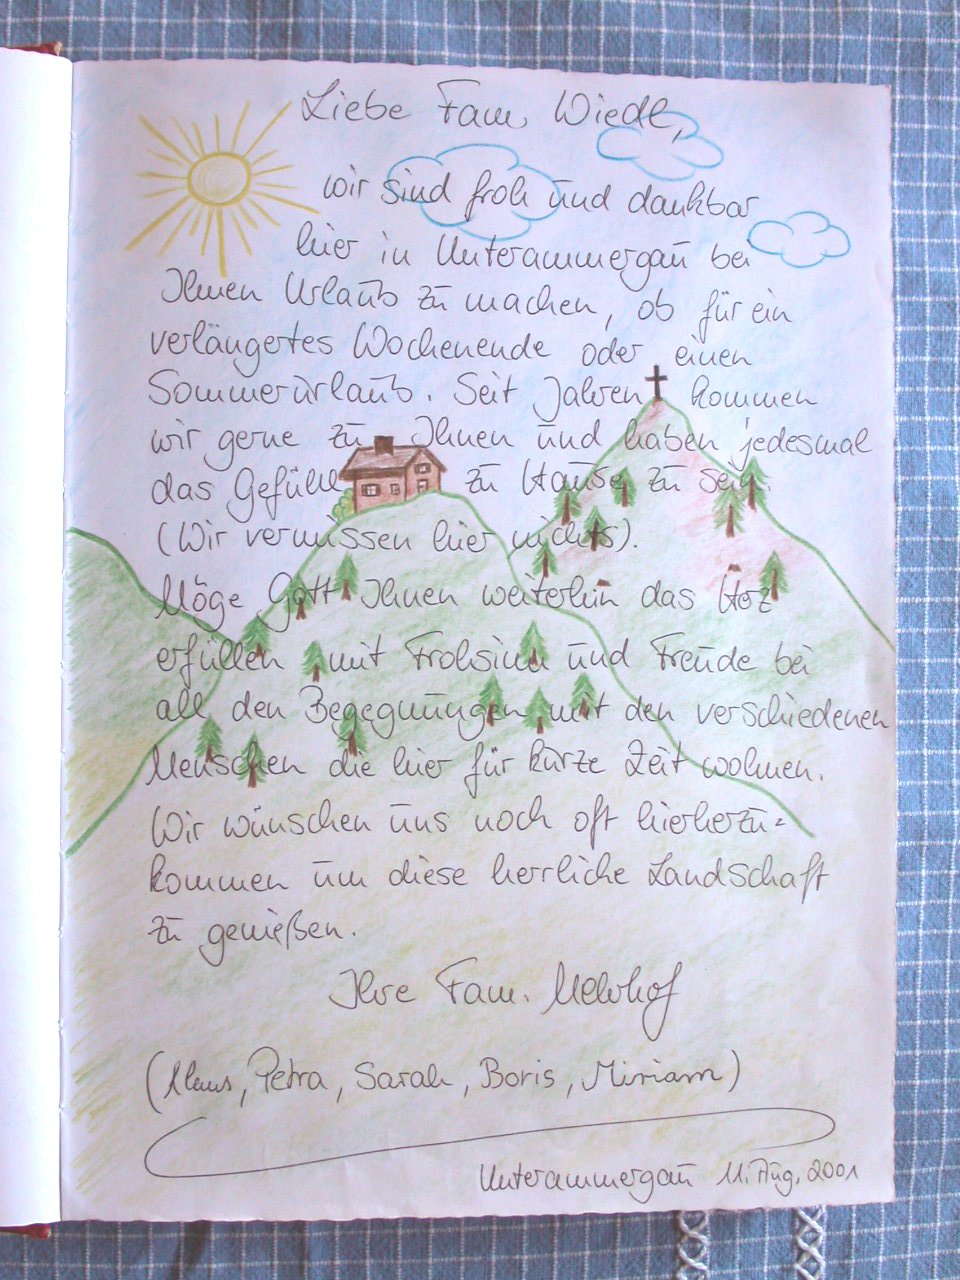 Liebe Fam. Wiedl,
wir sind froh und dankbar
hier in Unterammergau bei
Ihnen Urlaub zu machen, ob für ein
verlängertes Wochenende oder einen
Sommerurlaub. Seit Jahren kommen
wir gerne zu Ihnen und haben jedesmal
das Gefühl zu Hause zu sein.
(Wir vermissen hier nichts).
Möge Gott Ihnen weiterhin das Herz
erfüllen mit Frohsinn und Freude bei
all den Begegnungen mit den verschiedenen
Menschen die hier für kurze Zeit wohnen.
Wir wünschen uns noch oft hierherzu-
kommen um diese herrliche Landschaft
zu genießen.
Ihre Fam. Mehrhof
(Klaus, Petra, Sarah, Boris, Miriam)
Unterammergau 11. Aug. 2001